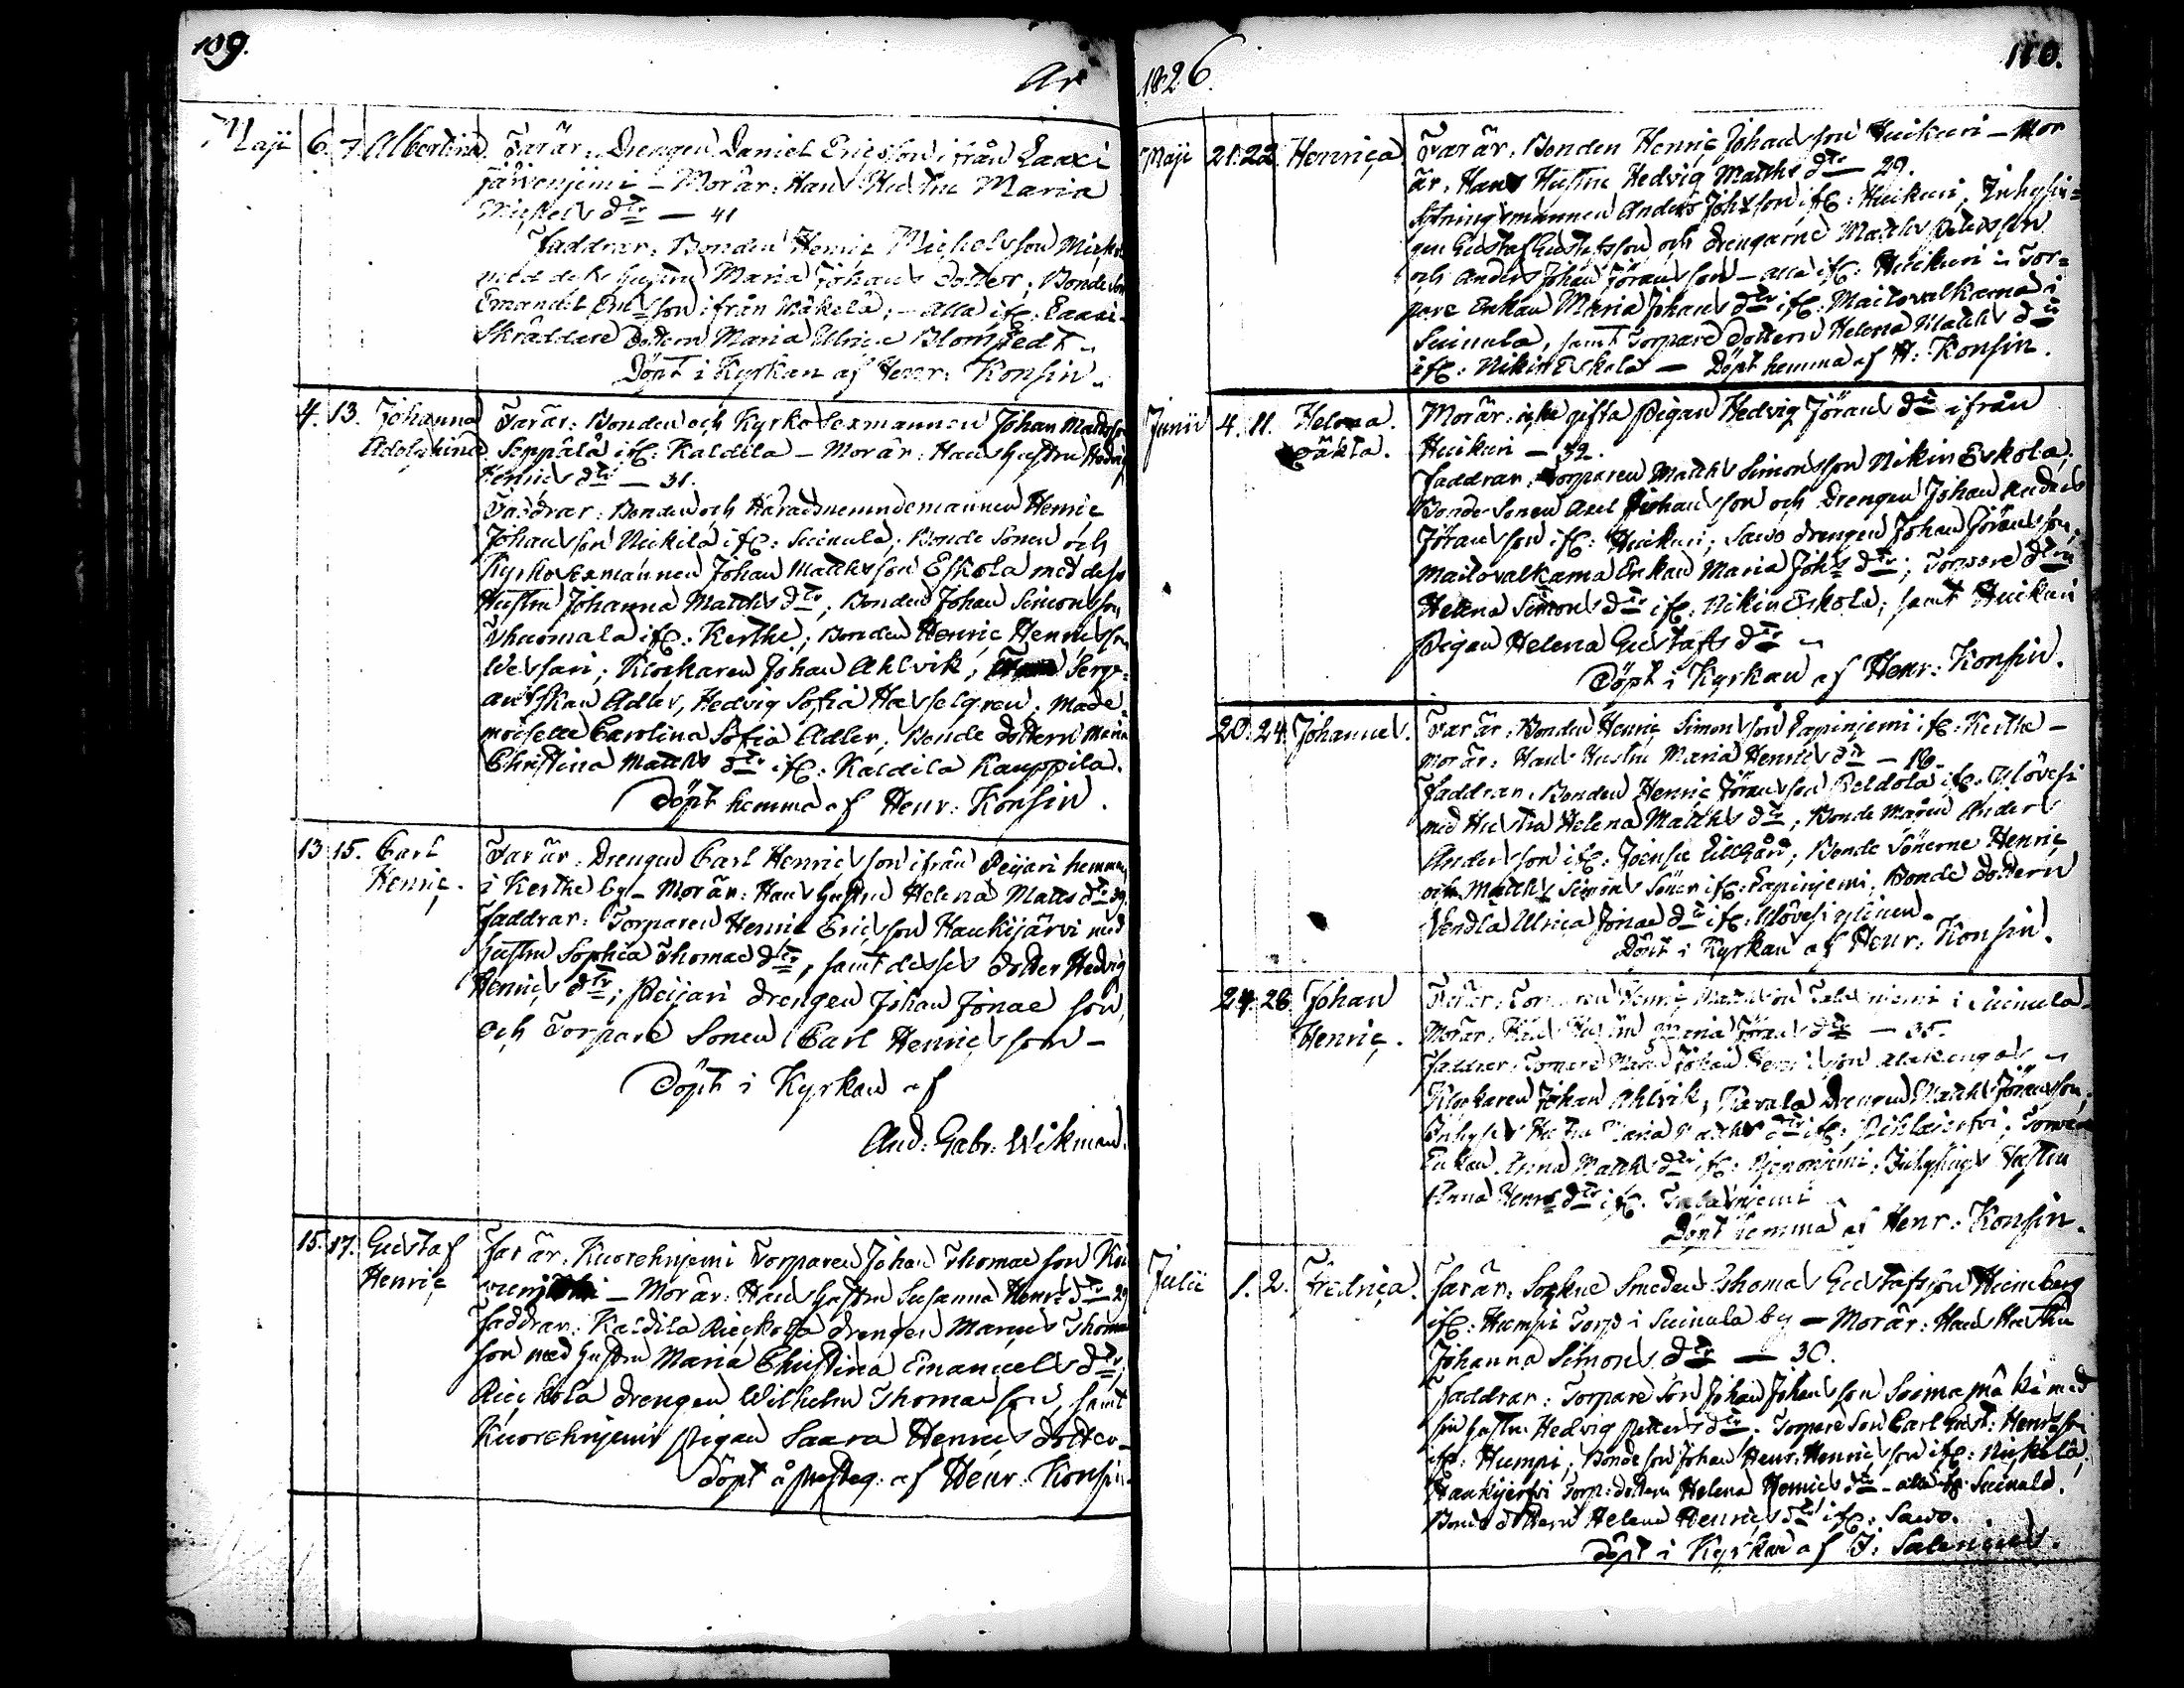 109.
År
Maji 6. 7. Albertina. Far är: Drengen Daniel Ericsson ifrån Laaxi
Järvenjemi – Mor är: Hans Hustru Maria
Michels dtr — 41
Faddrar: Bonden Henric Michelsson
med dess hustru Maria Johans dotter; Bonde son
Emanuel Ericsson ifrån Mäkelä; – alla ifr: Laaxi –
Skräddare Dottern Maria Ulrica Blomstedt –
Döpt i Kyrkan af Henr: Konsin.
4. 13. Johanna Far är: Bonden och Kyrko Sexmannen Johan Mattsson
Adolphina Seppälä ifr: Kaldila – Mor är: Hans hustru Hedvig
Henrics dtr — 31.
Faddrar: Bonden och Häradsnemndemannen Henric
Johansson Nickilä ifr: Suinula; Bonde Sonen och
Kyrko Sexmannen Johan Matthsson Eskola med dess
Hustru Johanna Matths dtr; Bonden Johan Simonsson
ifr: Kerthe; Bonden Henric Henricsson
Wessari; Klockaren Johan Ahlvik; Serge=
antskan Adler, Hedvig Sofia Hasselgren; Made=
moiselle Carolina Sofia Adler; Bonde dottern Maria
Christina Matths dtr ifr: Kaldila Kauppila.
Döpt hemma af Henr: Konsin.
13. 15. Carl Far är: Drengen Carl Henricsson ifrån Peijari hemman
Henric. i Kerthe by – Mor är: Hans hustru Helena Matts dtr 39.
Faddrar: Torparen Henric Ericsson Haukijärvi med
hustru Sophia Thomae dtr, samt desses dotter Hedvig
Henrics dtr; Peijari drengen Johan Jonae son,
och Torpare Sonen Carl Henricsson –
Döpt i Kyrkan af
And: Gabr: Wikman.
15. 17. Gustaf Far är: Kuorehnjemi Torparen Johan Thomae son
Henric – Mor är: Hans hustru Susanna Henrs dtr – 29
Faddrar: Kaldila drengen Marcus Thomae
son med hustru Maria Christina Emanuels dtr;
drengen Wilhelm Thomae son, samt
Kuorehnjemi pigan Saara Henrics dotter –
Döpt å presteg: af Henr: Konsin.
1826.
110.
Maji 21. 22. Henrica. Far är: Bonden Henric Johansson Huikuri – Mor
är: Hans Hustru Hedvig Matths dtr – 29.
Sytningsmannen Anders Johsson ifr: Huikuri, Inhysin=
gen Gustaf Gustafsson och drengarne Matths Pettersson
och Anders Johan Jöransson – alla ifr: Huikuri – Tor=
pare Enkan Maria Johans dtr ifr: Maitovalkama i
Suinula, samt Torpare Dottern Helena Matths dtr
ifr: Nikin Eskola — Döpt hemma af H: Konsin.
Junii 4. 11. Helena. Mor är: icke gifta Pigan Hedvig Jörans dtr ifrån
oäkta. Huikuri – 32.
Faddrar: Torparen Matths Simonsson Nikin Eskola;
Bonde Sonen Axel Johansson och Drengen Johan Anders
Jöransson ifr: Huikuri; Sawo drengen Johan Jöransson;
Maitovalkama Enkan Maria Johs dtr; Torpare dtrn
Helena Simons dtr ifr: Nikin Eskola; samt Huikuri
Pigan Helena Gustafs dtr –
Döpt i Kyrkan af Henr: Konsin.
20. 24. Johannes. Far är: Bonden Henric Simonsson Papinjemi ifr: Kerthe –
Mor är: Hans Hustru Maria Henrics dtr –
Faddrar: Bonden Henric Jöransson Peldola ifr:
med Hustru Helena Matths dtr; Bonde Mågen Anders
Andersson ifr: ; Bonde Sönerne Henric
och Matths Simons Söner ifr: Papinjemi; Bonde dottern
Vendla Ulrica Jonae dtr ifr:
Döpt i Kyrkan af Henr: Konsin.
24. 28. Johan Far är: Torparen Henric Mattsson i Suinula –
Henric. Mor är: Hans Hustru Maria Jörans dtr — 35.
Faddrar: Torpare Johan Henricsson
Klockaren Johan Ahlvik; drengen Matths Jöransson;
Maria Matths dtr ifr: ; Torpare
Enkan Anna Matths dtr ifr: ; Inhysings Hustru
Anna Henrs dtr ifr:
Döpt hemma af Henr: Konsin.
Julii 1. 2. Fredrica. Far är: Sockne Smeden Thomas Gustafsson Heimberg
ifr: Humpi Torp i Suinula by – Mor är: Hans Hustru
Johanna Simons dtr — 30.
Faddrar: Torpare Son Johan Johansson med
sin hustru Hedvig Petters dtr; Torpare Son Carl Gust: Henrsson
ifr: Humpi; Bonde son Johan Henr: Henricsson ifr: Nickilä;
Haukijerfvi Torp: dottern Helena Henrics dtr – alla ifr: Suinula.
Bonde dottern Helena Henrics dtr ifr: Sawo.
Döpt i Kyrkan af J: Salenius.